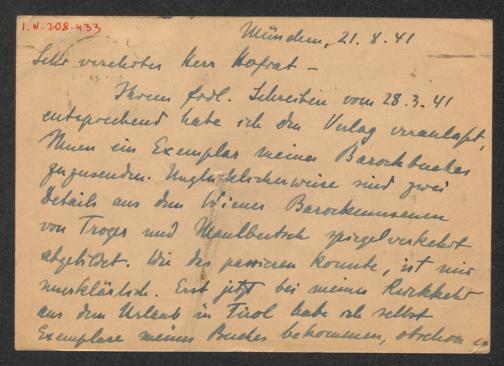 I.N. 208.433
München, 21.8.41
Sehr verehrter Herr Hofrat –
Ihrem frdl. Schreiben vom 28.3.41
entsprechend habe ich den Verlag veranlaßt,
Ihnen ein Exemplar meines Barockbuches
zuzusenden. Unglücklicherweise sind zwei
Details aus dem Wiener Barockmuseum
von Troger und Maulbertsch spiegelverkehrt
abgebildet. Wie das passieren konnte, ist mir
unerklärlich. Erst jetzt bei meiner Rückkehr
aus dem Urlaub in Tirol habe ich selbst
Exemplare meines Buches bekommen, obschon